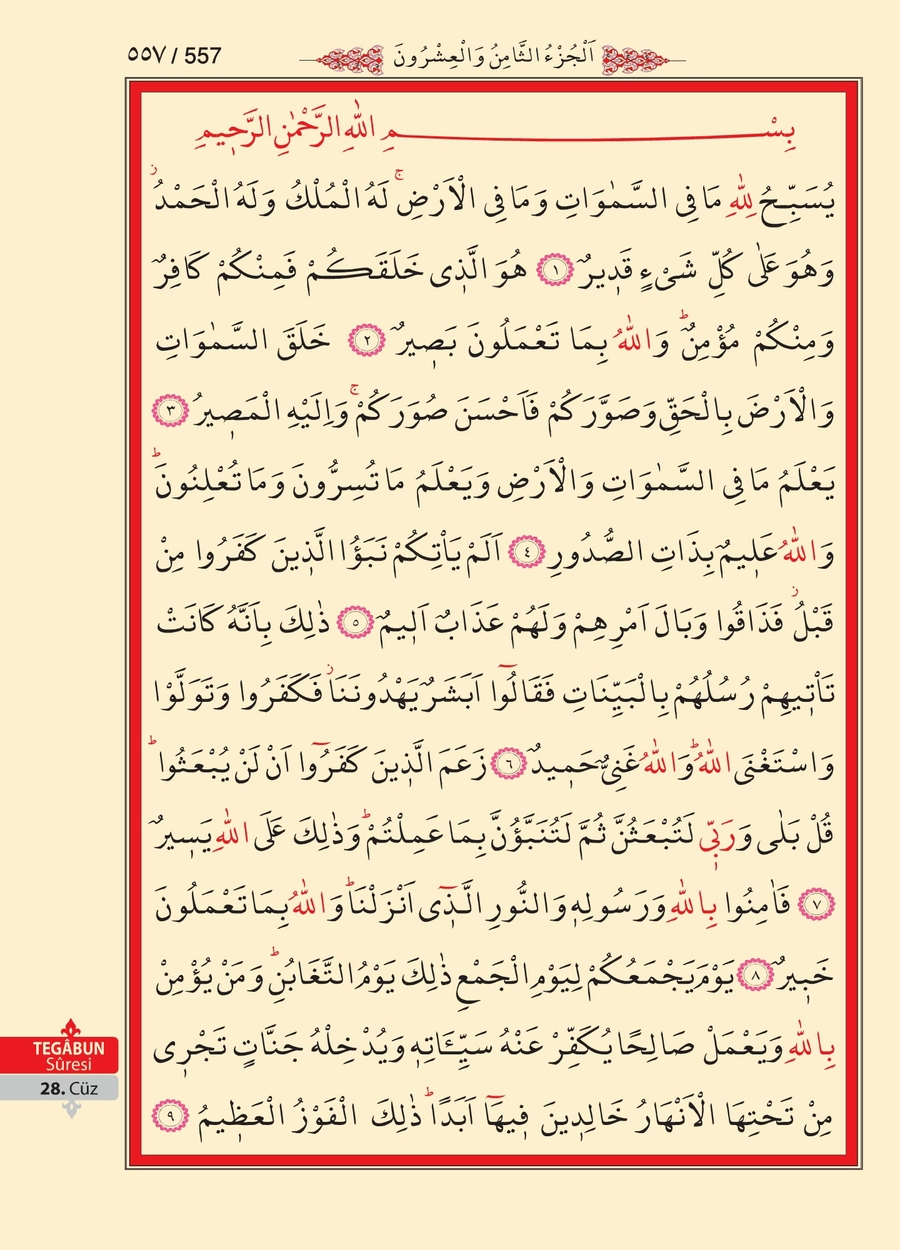 ٥٥٧ / 557
اَلْجُزْءُ الثَّامِنُ وَالْعِشْرُونَ
بِسْمِ اللّٰهِ الرَّحْمٰنِ الرَّحٖيمِ
يُسَبِّحُ لِلّٰهِ مَا فِى السَّمٰوَاتِ وَمَا فِى الْاَرْضِۚ لَهُ الْمُلْكُ وَلَهُ الْحَمْدُؗ
وَهُوَ عَلٰى كُلِّ شَىْءٍ قَدٖيرٌ ﴿١﴾ هُوَ الَّذٖى خَلَقَكُمْ فَمِنْكُمْ كَافِرٌ
وَمِنْكُمْ مُؤْمِنٌؕ وَاللّٰهُ بِمَا تَعْمَلُونَ بَصٖيرٌ ﴿٢﴾ خَلَقَ السَّمٰوَاتِ
وَالْاَرْضَ بِالْحَقِّ وَصَوَّرَكُمْ فَاَحْسَنَ صُوَرَكُمْۚ وَاِلَيْهِ الْمَصٖيرُ ﴿٣﴾
يَعْلَمُ مَا فِى السَّمٰوَاتِ وَالْاَرْضِ وَيَعْلَمُ مَا تُسِرُّونَ وَمَا تُعْلِنُونَؕ
وَاللّٰهُ عَلٖيمٌ بِذَاتِ الصُّدُورِ ﴿٤﴾ اَلَمْ يَاْتِكُمْ نَبَؤُا الَّذٖينَ كَفَرُوا مِنْ
قَبْلُؗ فَذَاقُوا وَبَالَ اَمْرِهِمْ وَلَهُمْ عَذَابٌ اَلٖيمٌ ﴿٥﴾ ذٰلِكَ بِاَنَّهُ كَانَتْ
تَاْتٖيهِمْ رُسُلُهُمْ بِالْبَيِّنَاتِ فَقَالُٓوا اَبَشَرٌ يَهْدُونَنَاؗ فَكَفَرُوا وَتَوَلَّوْا
وَاسْتَغْنَى اللّٰهُؕ وَاللّٰهُ غَنِىٌّ حَمٖيدٌ ﴿٦﴾ زَعَمَ الَّذٖينَ كَفَرُٓوا اَنْ لَنْ يُبْعَثُواؕ
قُلْ بَلٰى وَرَبّٖى لَتُبْعَثُنَّ ثُمَّ لَتُنَبَّؤُنَّ بِمَا عَمِلْتُمْؕ وَذٰلِكَ عَلَى اللّٰهِ يَسٖيرٌ
﴿٧﴾ فَاٰمِنُوا بِاللّٰهِ وَرَسُولِهٖ وَالنُّورِ الَّذٖٓى اَنْزَلْنَاؕ وَاللّٰهُ بِمَا تَعْمَلُونَ
خَبٖيرٌ ﴿٨﴾ يَوْمَ يَجْمَعُكُمْ لِيَوْمِ الْجَمْعِ ذٰلِكَ يَوْمُ التَّغَابُنِؕ وَمَنْ يُؤْمِنْ
بِاللّٰهِ وَيَعْمَلْ صَالِحًا يُكَفِّرْ عَنْهُ سَيِّـَٔاتِهٖ وَيُدْخِلْهُ جَنَّاتٍ تَجْرٖى
مِنْ تَحْتِهَا الْاَنْهَارُ خَالِدٖينَ فٖيهَٓا اَبَدًاؕ ذٰلِكَ الْفَوْزُ الْعَظٖيمُ ﴿٩﴾
TEGÂBUN
Sûresi
28. Cüz